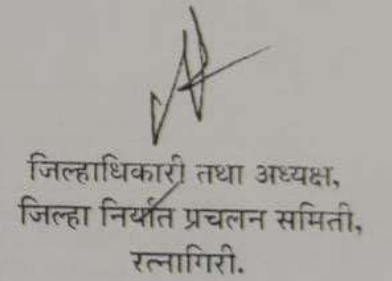 जिल्हाधिकारी तथा अध्यक्ष,
जिल्हा निर्यात प्रचलन समिती,
रत्नागिरी.